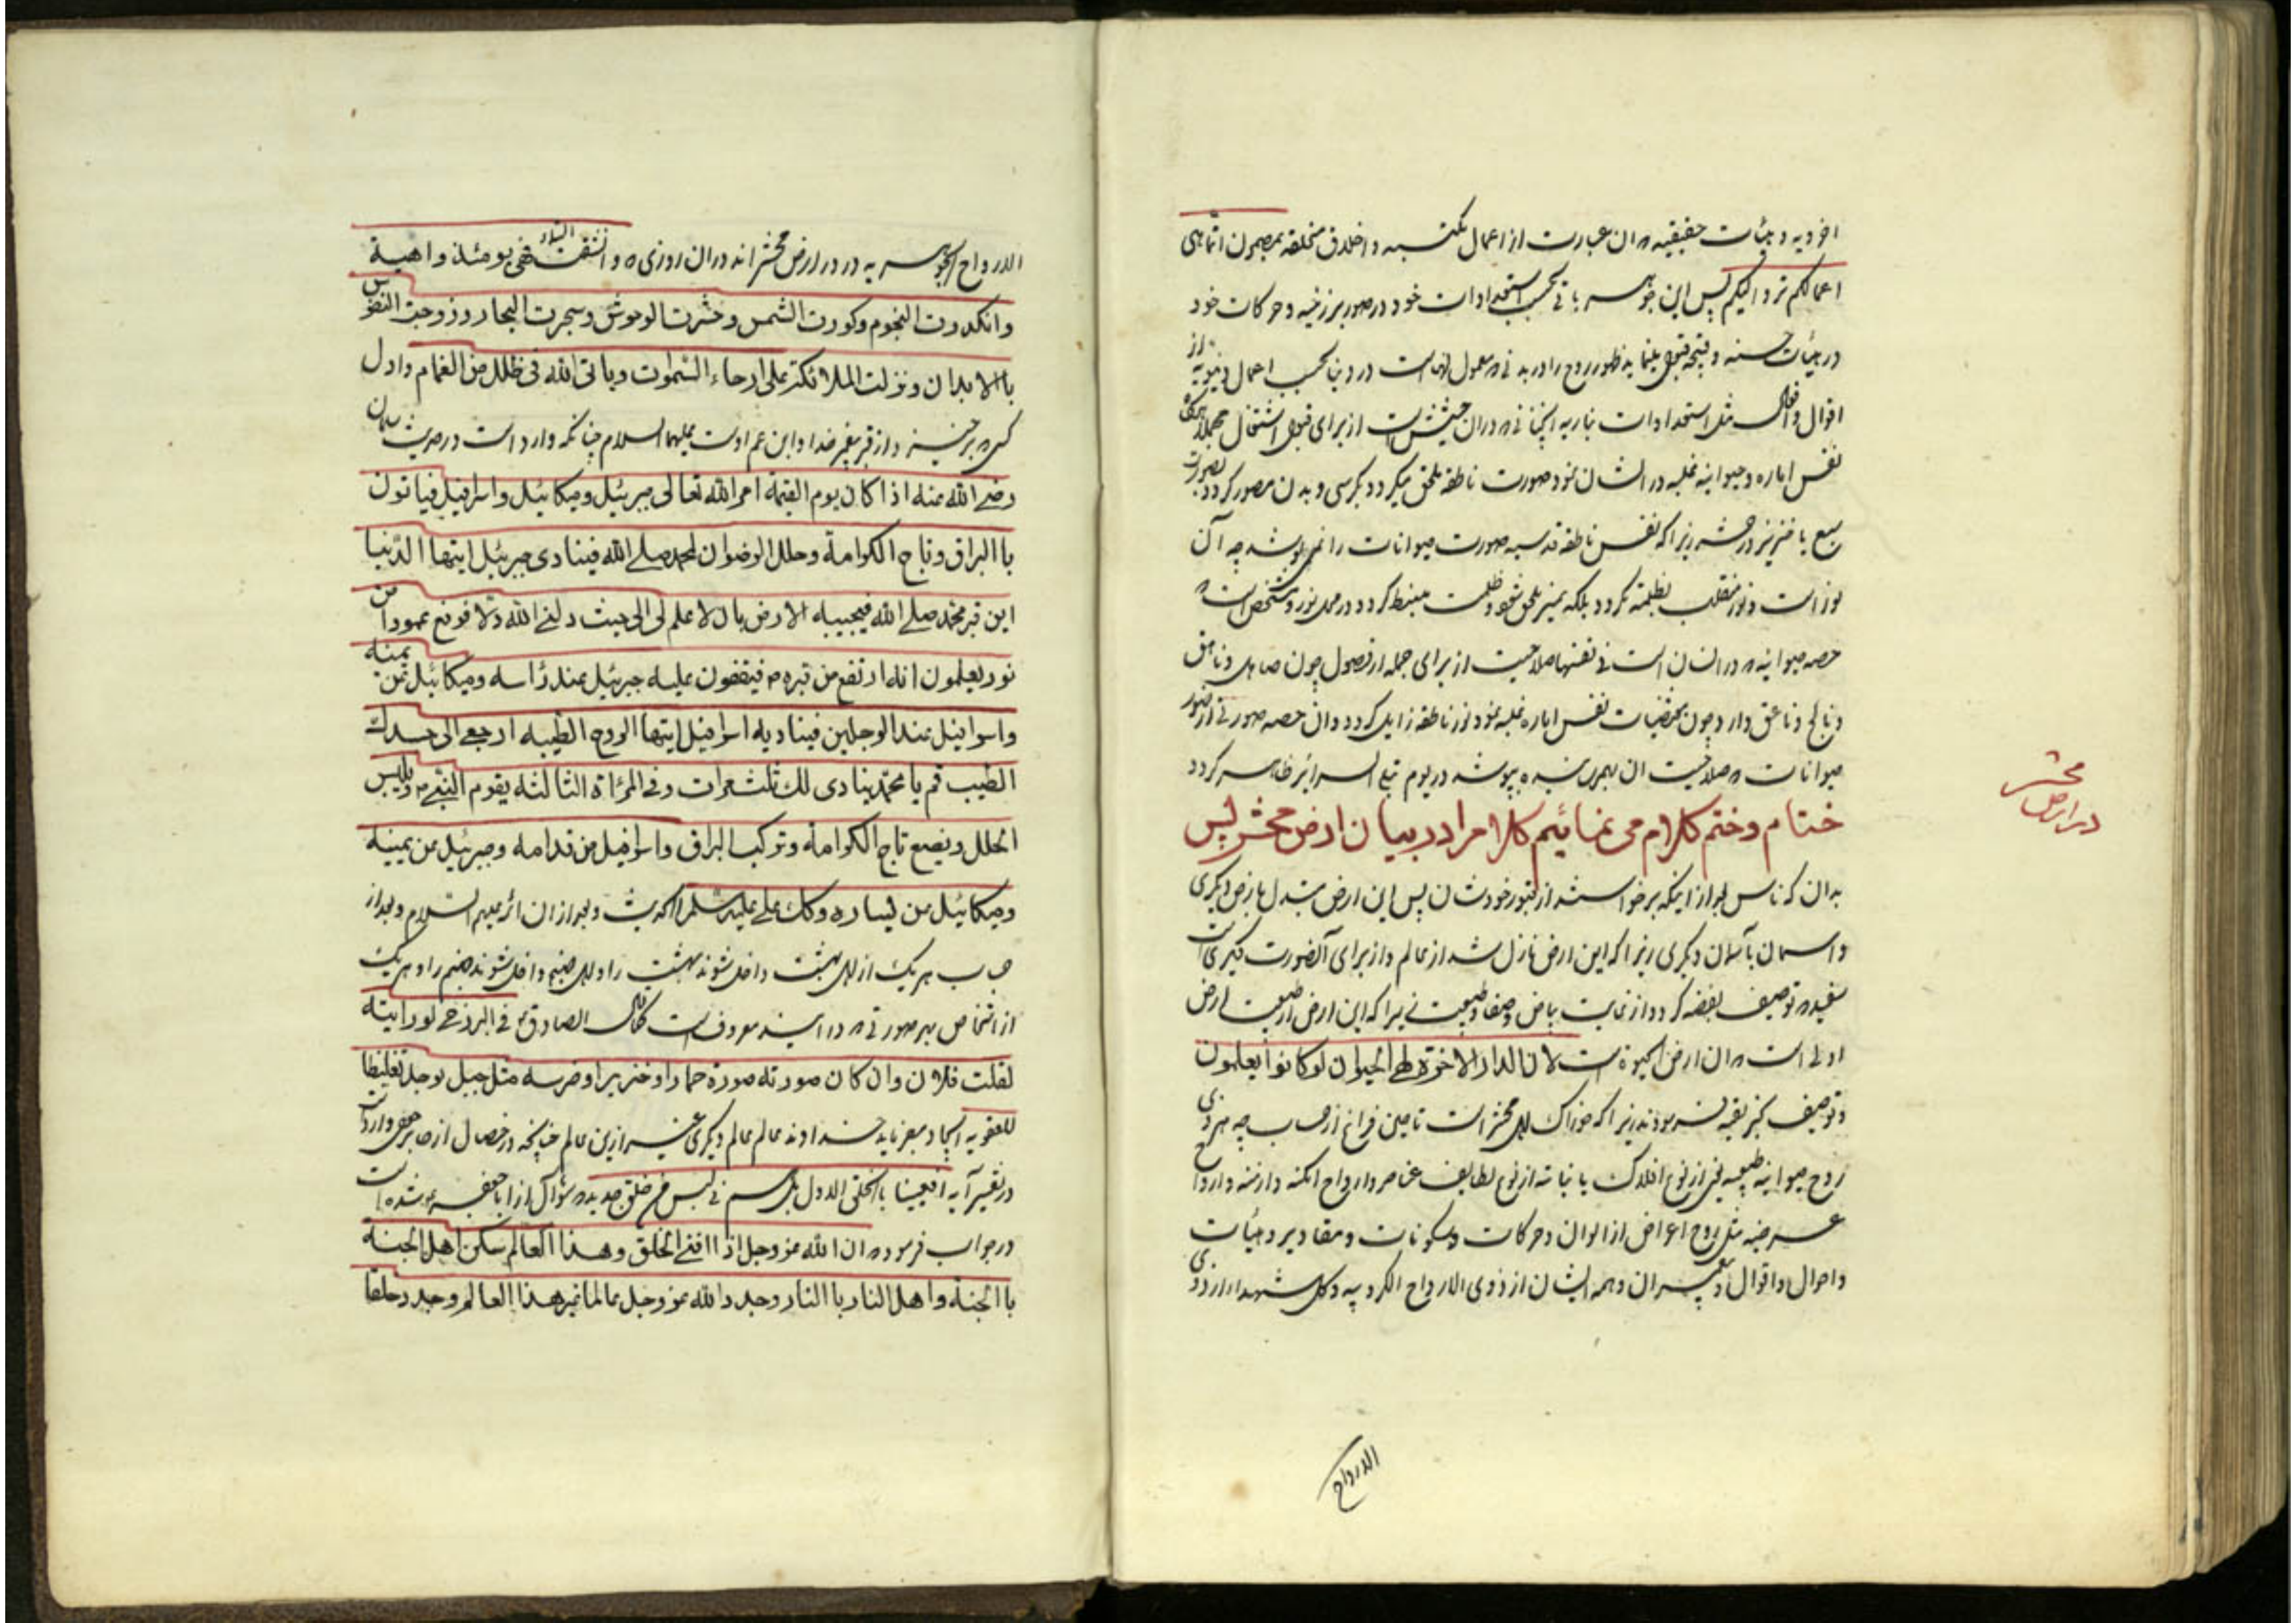 اخرویه و هیئات حقیقیه که ان عبارت از اعمال مکتسبه و اخلاق متخلقه بمضمون انما هی
اعمالکم ترد الیکم پس این جوهر باقی بحسب استعدادات خود در صور برزخیه و حرکات خود
در هیئات حسنه و قبیحه قبول ظهور روح را در بدنی که معمول است در دنیا بحسب اعمال دنیویه از
اقوال و افعال مثل استعدادات ناریه از برای قبول اشتعال
نفس اماره و حیوانیه غلبه در انسان نمود صورت ناطقه ملحق میگردد بکرسی و بدن مصور گردد بصورت
سبع یا خنزیر در حشر زیرا که نفس ناطقه قدسیه صورت حیوانات را نمی پوشد چه آن
نور است و نور منقلب بظلمت نگردد بلکه ظلمت منبسط گردد در محل نور
حصه حیوانیه که در انسان است فی نفسها صلاحیت از برای جمله از فصول چون صاهل و ناهق
و نابح و ناعق دارد و چون بمقتضیات نفس اماره غلبه نمود نور ناطقه زایل گردد و ان حصه صورتی از صور
حیوانات که صلاحیت ان بهمرسیده بپوشد در یوم تبلی السرائر ظاهر گردد
ختام وختم کلام می نمائیم کلام را در بیان ارض محشر پس
بدان که ناس بعد از اینکه برخواسته از قبور خودشان پس این ارض مبدل بارض دیگری
و اسمان بآسمان دیگری زیرا که این ارض نازل شد از عالم و از برای آن صورت دیگری است
توصیف بفضه گردد از غایت بیاض و صفا زیرا که این ارض ارض طبیعت و ارض
اولی است که ان ارض حیوة است لان الدار الاخرة لهی الحیوان لو کانوا یعلمون
و توصیف بخبز نقیه فرمودند زیرا که خوراک اهل محشر است تا حین فراغ از حساب چه هر ذی
روح حیوانیه طبیعیه از نوع افلاک یا نباتیه از نوع لطایف عناصر و ارواح امکنه و ازمنه و ارواح
عرضیه مثل روح اعراض از الوان و حرکات و سکونات و مقادیر و هیئات
و احوال و اقوال و غیر ان و همه ایشان از ذوی الارواح الکروبیه و کل شهداء از ذوی
الارواح
در ارض محشر
الارواح الجوهریه در در ارض محشراند در ان روزی که وانشقت السماء فهی یومئذ واهیة
وانکدرت النجوم وکورت الشمس وحشرت الوحوش وسجرت البحار وزوجت النفوس
باالابدان ونزلت الملائکة علی ارجاء السموات ویاتی الله فی ظلل من الغمام و اول
کسی که برخیزد از قبر پیغمبر خدا و ابن عم اوست علیهما السلام چنانکه وارد است در حدیث سلمان
رضی الله عنه اذا کان یوم القیمة امر الله تعالی جبرئیل ومیکائیل واسرافیل فیاتون
باالبراق وتاج الکرامة وحلل الرضوان لمحمد صلی الله فینادی جبرئیل ایتها الدنیا
این قبر محمد صلی الله فیجیبه الارض بان لا علم لی الی حیث دکنی الله دکا فرفع عمودا من
نور یعلمون انه ارتفع من قبره ص فیقفون علیه جبرئیل عند رأسه ومیکائیل عن یمینه
واسرافیل عند الرجلین فینادیه اسرافیل ایتها الروح الطیبه ارجعی الی جسدک
الطیب قم یا محمد ینادی لک ثلث مرات وفی المرأة الثالثه یقوم النبی ص ویلبس
الحلل ویضع تاج الکرامة وترکب البراق واسرافیل من قدامه وجبرئیل عن یمینه
ومیکائیل عن یساره وکک علی علیه السلام الحدیث و بعد از ان ائمه علیهم السلام و بعد از
حساب هر یک از اهل بهشت داخل شوند بهشت را و اهل جهنم داخل شوند جهنم را و هر یک
از اشخاص بهر صورتی که در ایند معروفست کما قال الصادق ع فی البرزخ لو رایته
لقلت فلان وان کان صورته صورة حمار او خنزیر او ضرسه مثل جبل یوجد تغلیظا
للعقوبه ایجاد میفرماید خداوند عالم عالم دیگری غیر ازین عالم چنانچه در خصال از جابر جعفی وارد است
در تفسیر آیه افعیینا باالخلق الاول بل هم فی لبس من خلق جدید که سؤال از ابا جعفر ع شده است
در جواب فرمود که ان الله عز وجل اذا افنی الخلق وهذا العالم سکن اهل الجنة
باالجنة واهل النار باالنار وجدد الله عز وجل عالما غیر هذا العالم وجدد خلقا